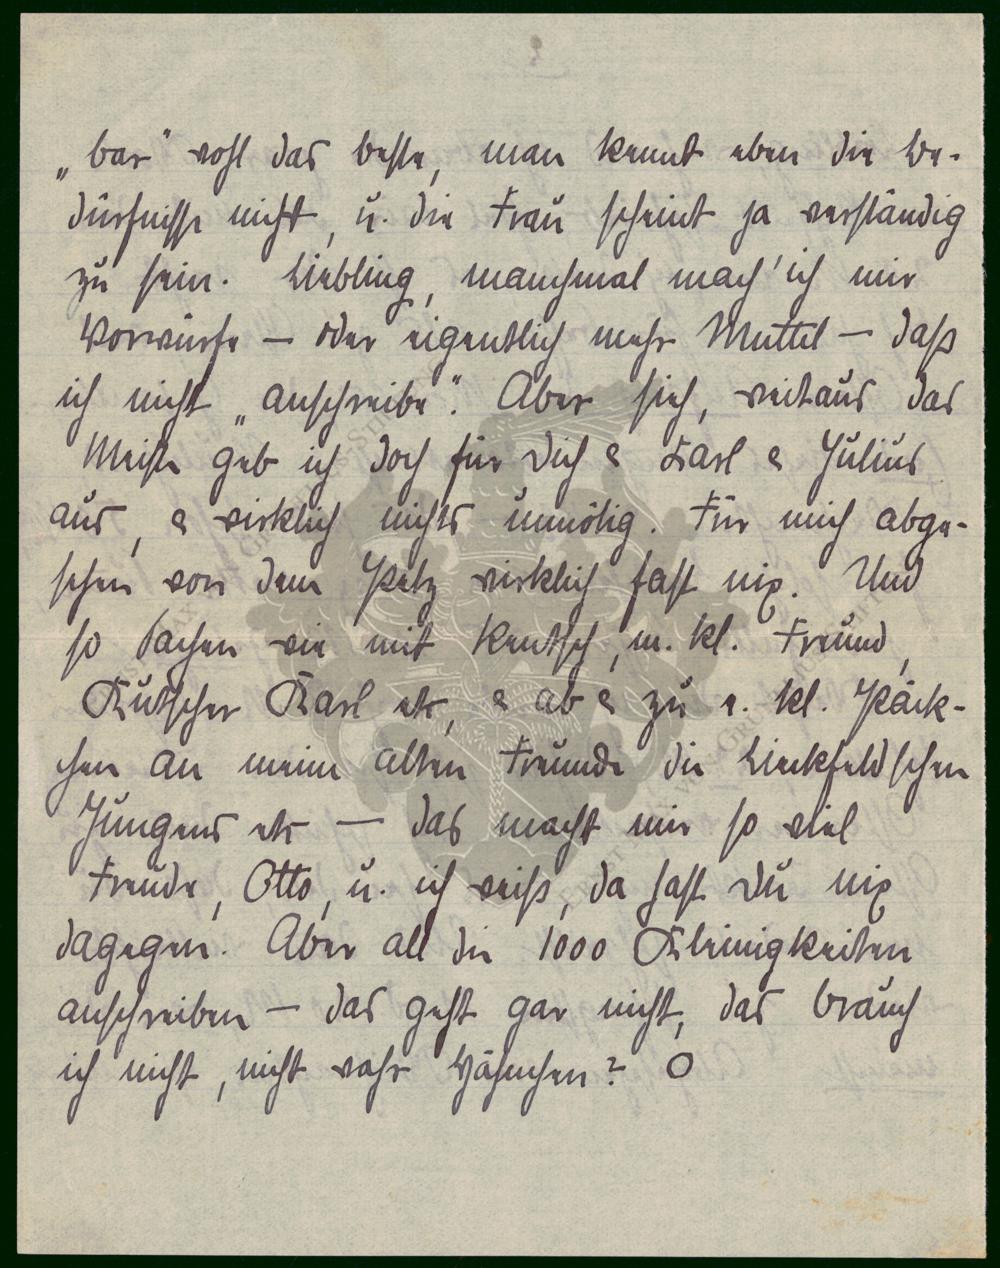 „bar“ wohl das beste, man kennt eben die Be-
dürfnisse nicht, u. die Frau scheint ja verständig
zu sein. Liebling, manchmal mach' ich mir
Vorwürfe – oder eigentlich mehr Muttel – daß
ich nicht „anschreibe“. Aber sieh, weitaus das
Meiste geb ich doch für Dich & Karl & Julius
aus, & wirklich nichts unnötig. Für mich abge-
sehen von dem Pelz wirklich fast nix. Und
so Sachen wie mit Kentsch, m. kl. Freund,
Kutscher Karl etc, & ab & zu e. kl. Päck-
chen an meine alten Freunde die Lieckfeldschen
Jungens etc – das macht mir so viel
Freude, Otto, u. ich weiß, da hast Du nix
dagegen. Aber all die 1000 Kleinigkeiten
anschreiben – das geht gar nicht, das brauch
ich nicht, nicht wahr Hähnchen? O